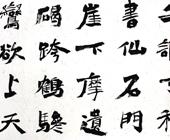 書仙石門
崖下摩遺
碣跨鶴驂
鸞欲上天